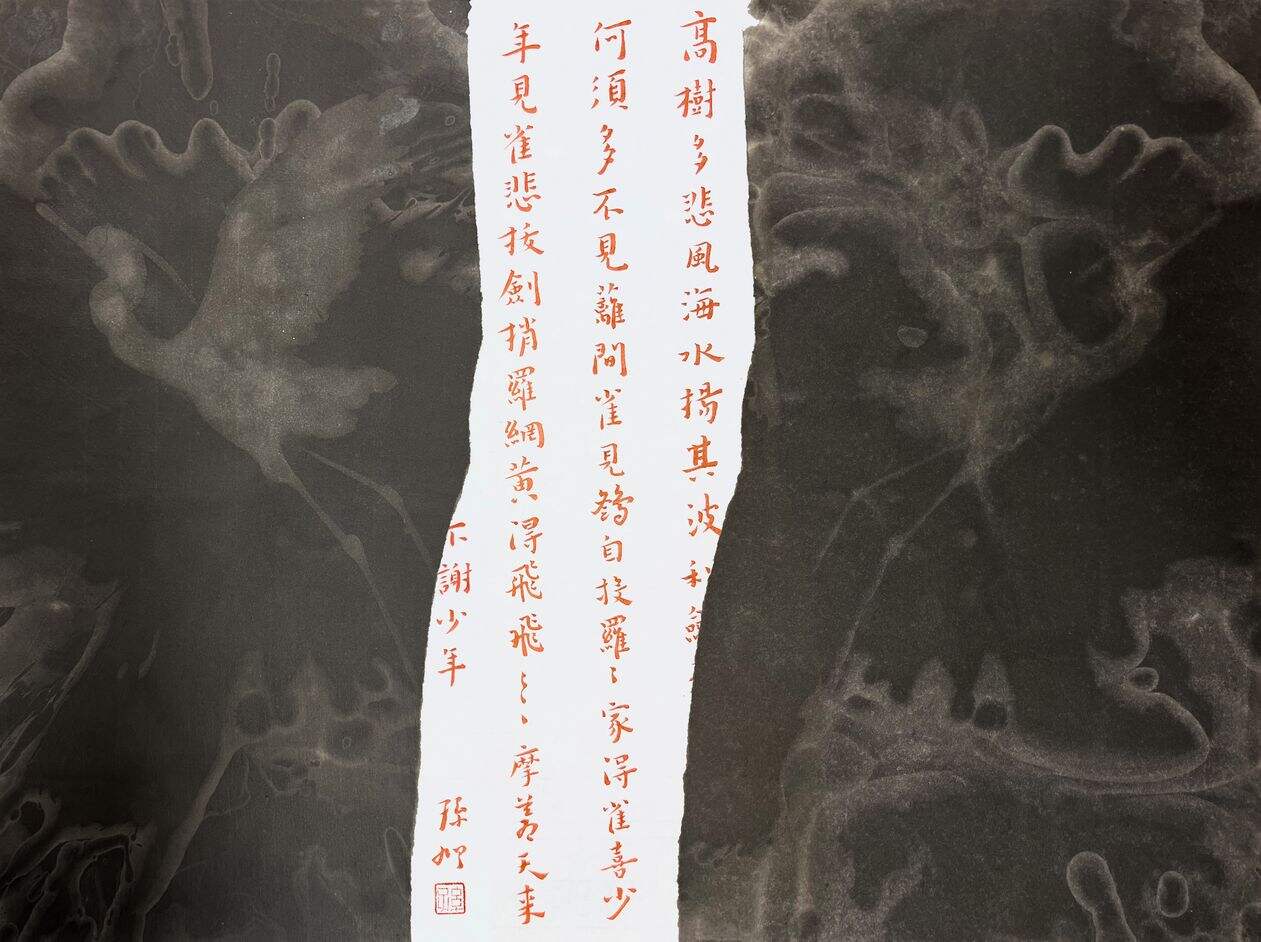 髙樹多悲風海水揚其波利
何須多不見蘺間雀見鷂自投羅〻家得雀喜少
年見雀悲拔劍捎羅網黄得飛飛〻〻摩蒼天来
下謝少年